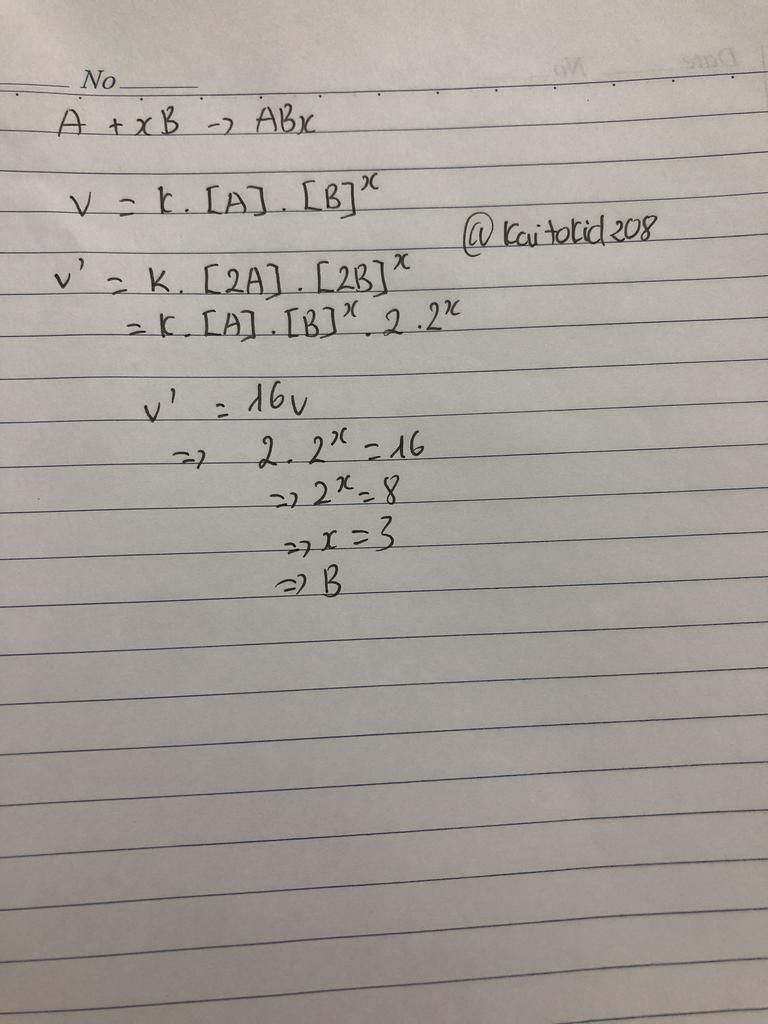 No
Date No
A + xB -> ABx
v = k. [A]. [B]^x
@Kaitokid208
v' = k. [2A]. [2B]^x
= k. [A]. [B]^x. 2. 2^x
v' = 16v
=> 2. 2^x = 16
=> 2^x = 8
=> x = 3
=> B